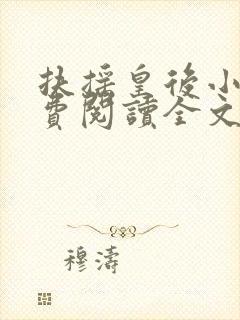 扶摇皇後小
費閱讀全文
穆濤